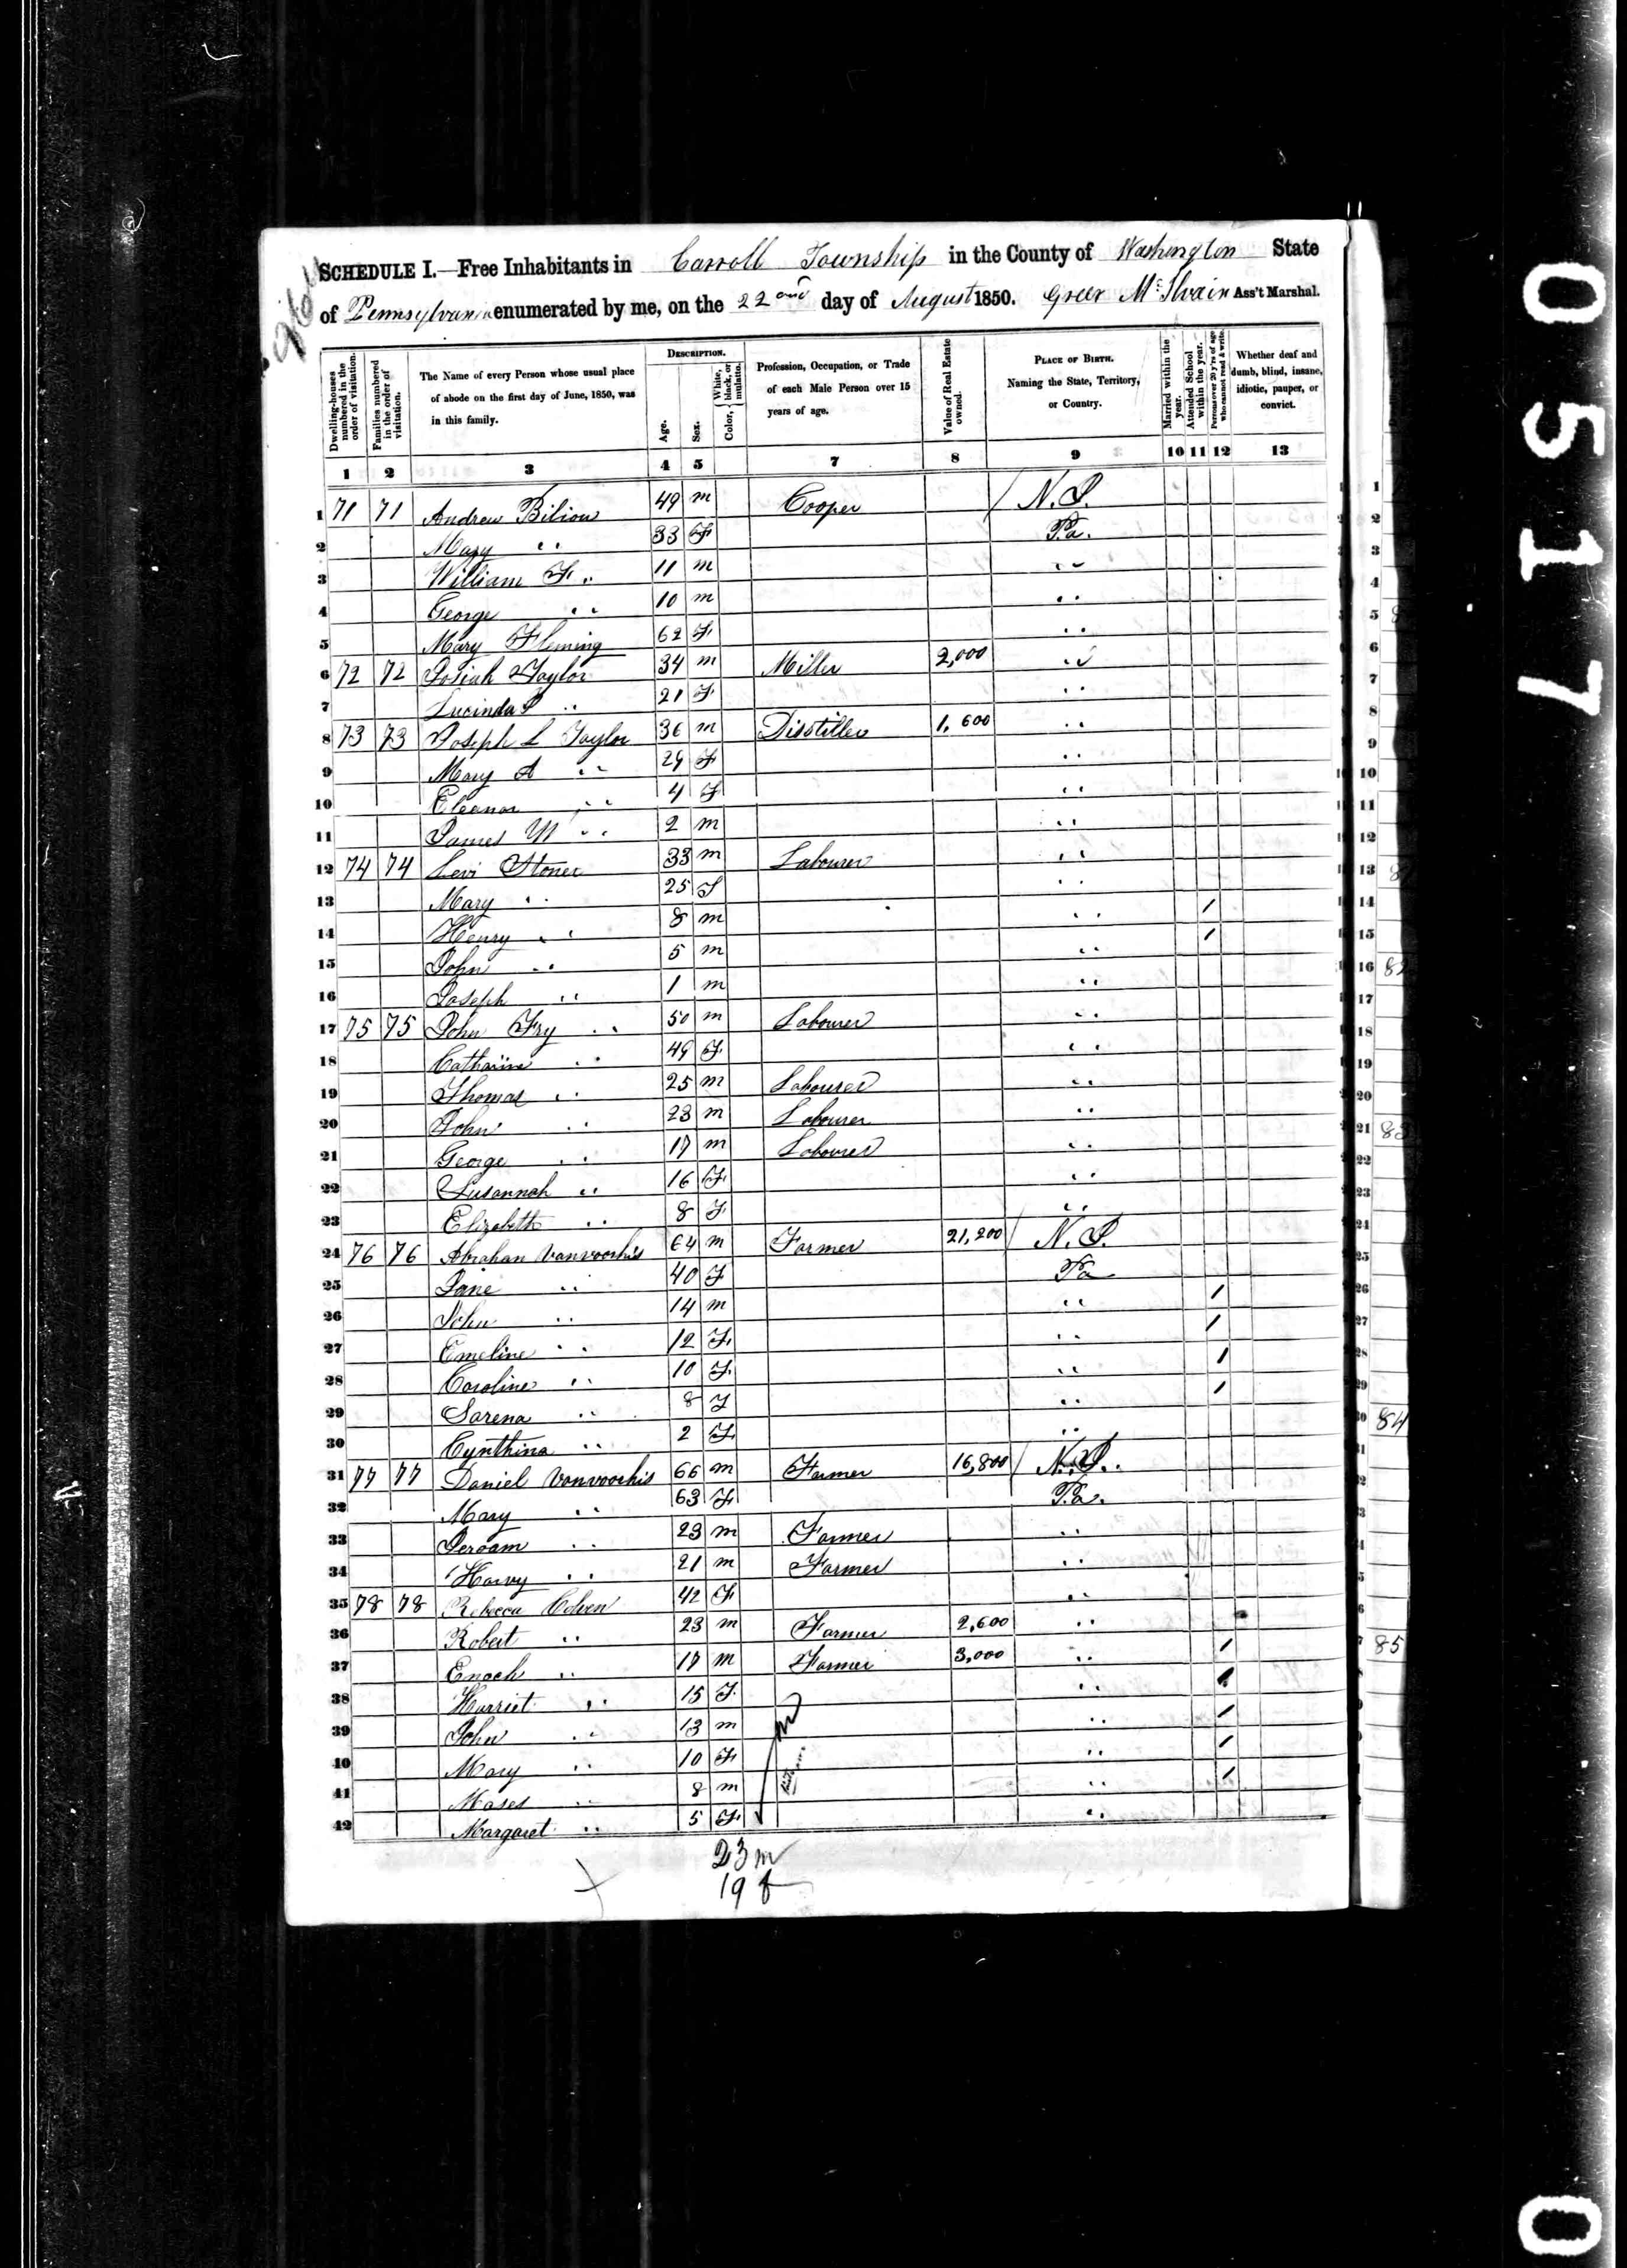 SCHEDULE I.—Free Inhabitants in Carroll Township in the County of Washington State
of Pennsylvania enumerated by me, on the 22nd day of August 1850. Greer McIlvain Ass't Marshal.
Dwelling-houses numbered in the order of visitation.
Families numbered in the order of visitation.
The Name of every Person whose usual place of abode on the first day of June, 1850, was in this family.
DESCRIPTION.
Age.
Sex.
Color, White, black, or mulatto.
Profession, Occupation, or Trade of each Male Person over 15 years of age.
Value of Real Estate owned.
PLACE OF BIRTH. Naming the State, Territory, or Country.
Married within the year.
Attended School within the year.
Persons over 20 y'rs of age who cannot read & write.
Whether deaf and dumb, blind, insane, idiotic, pauper, or convict.
1 2 3 4 5 7 8 9 10 11 12 13
1 71 71 Andrew Bilion 49 m Cooper N.J.
2 Mary " 33 F Pa.
3 William F. " 11 m "
4 George " 10 m "
5 Mary Fleming 62 F "
6 72 72 Josiah Taylor 34 m Miller 2,000 "
7 Lucinda P " 21 F "
8 73 73 Joseph L Taylor 36 m Disstiller 1,600 "
9 Mary A " 29 F "
10 Eleanor " 4 F "
11 James M " 2 m "
12 74 74 Levi Stoner 33 m Labourer "
13 Mary " 25 F "
14 Henry " 8 m " /
15 John " 5 m " /
16 Joseph " 1 m "
17 75 75 John Fry " 50 m Labourer "
18 Catharine " 49 F "
19 Thomas " 25 m Labourer "
20 John " 23 m Labourer "
21 George " 17 m Labourer "
22 Susannah " 16 F "
23 Elizabeth " 8 F "
24 76 76 Abraham Vanvoorhis 64 m Farmer 21,200 N.J.
25 Jane " 40 F Pa
26 John " 14 m " /
27 Emeline " 12 F " /
28 Caroline " 10 F " /
29 Sarena " 8 F " /
30 Cynthina " 2 F "
31 77 77 Daniel Vanvoorhis 66 m Farmer 16,800 N.J.
32 Mary " 63 F Pa.
33 Jeroam " 23 m Farmer "
34 Harvy " 21 m Farmer "
35 78 78 Rebecca Colven 42 F "
36 Robert " 23 m Farmer 2,600 "
37 Enoch " 17 m Farmer 3,000 " /
38 Harriet " 15 F " /
39 John " 13 m " /
40 Mary " 10 F " /
41 Moses " 8 m " /
42 Margaret " 5 F "
23 m
19 f
84
85
0517
0